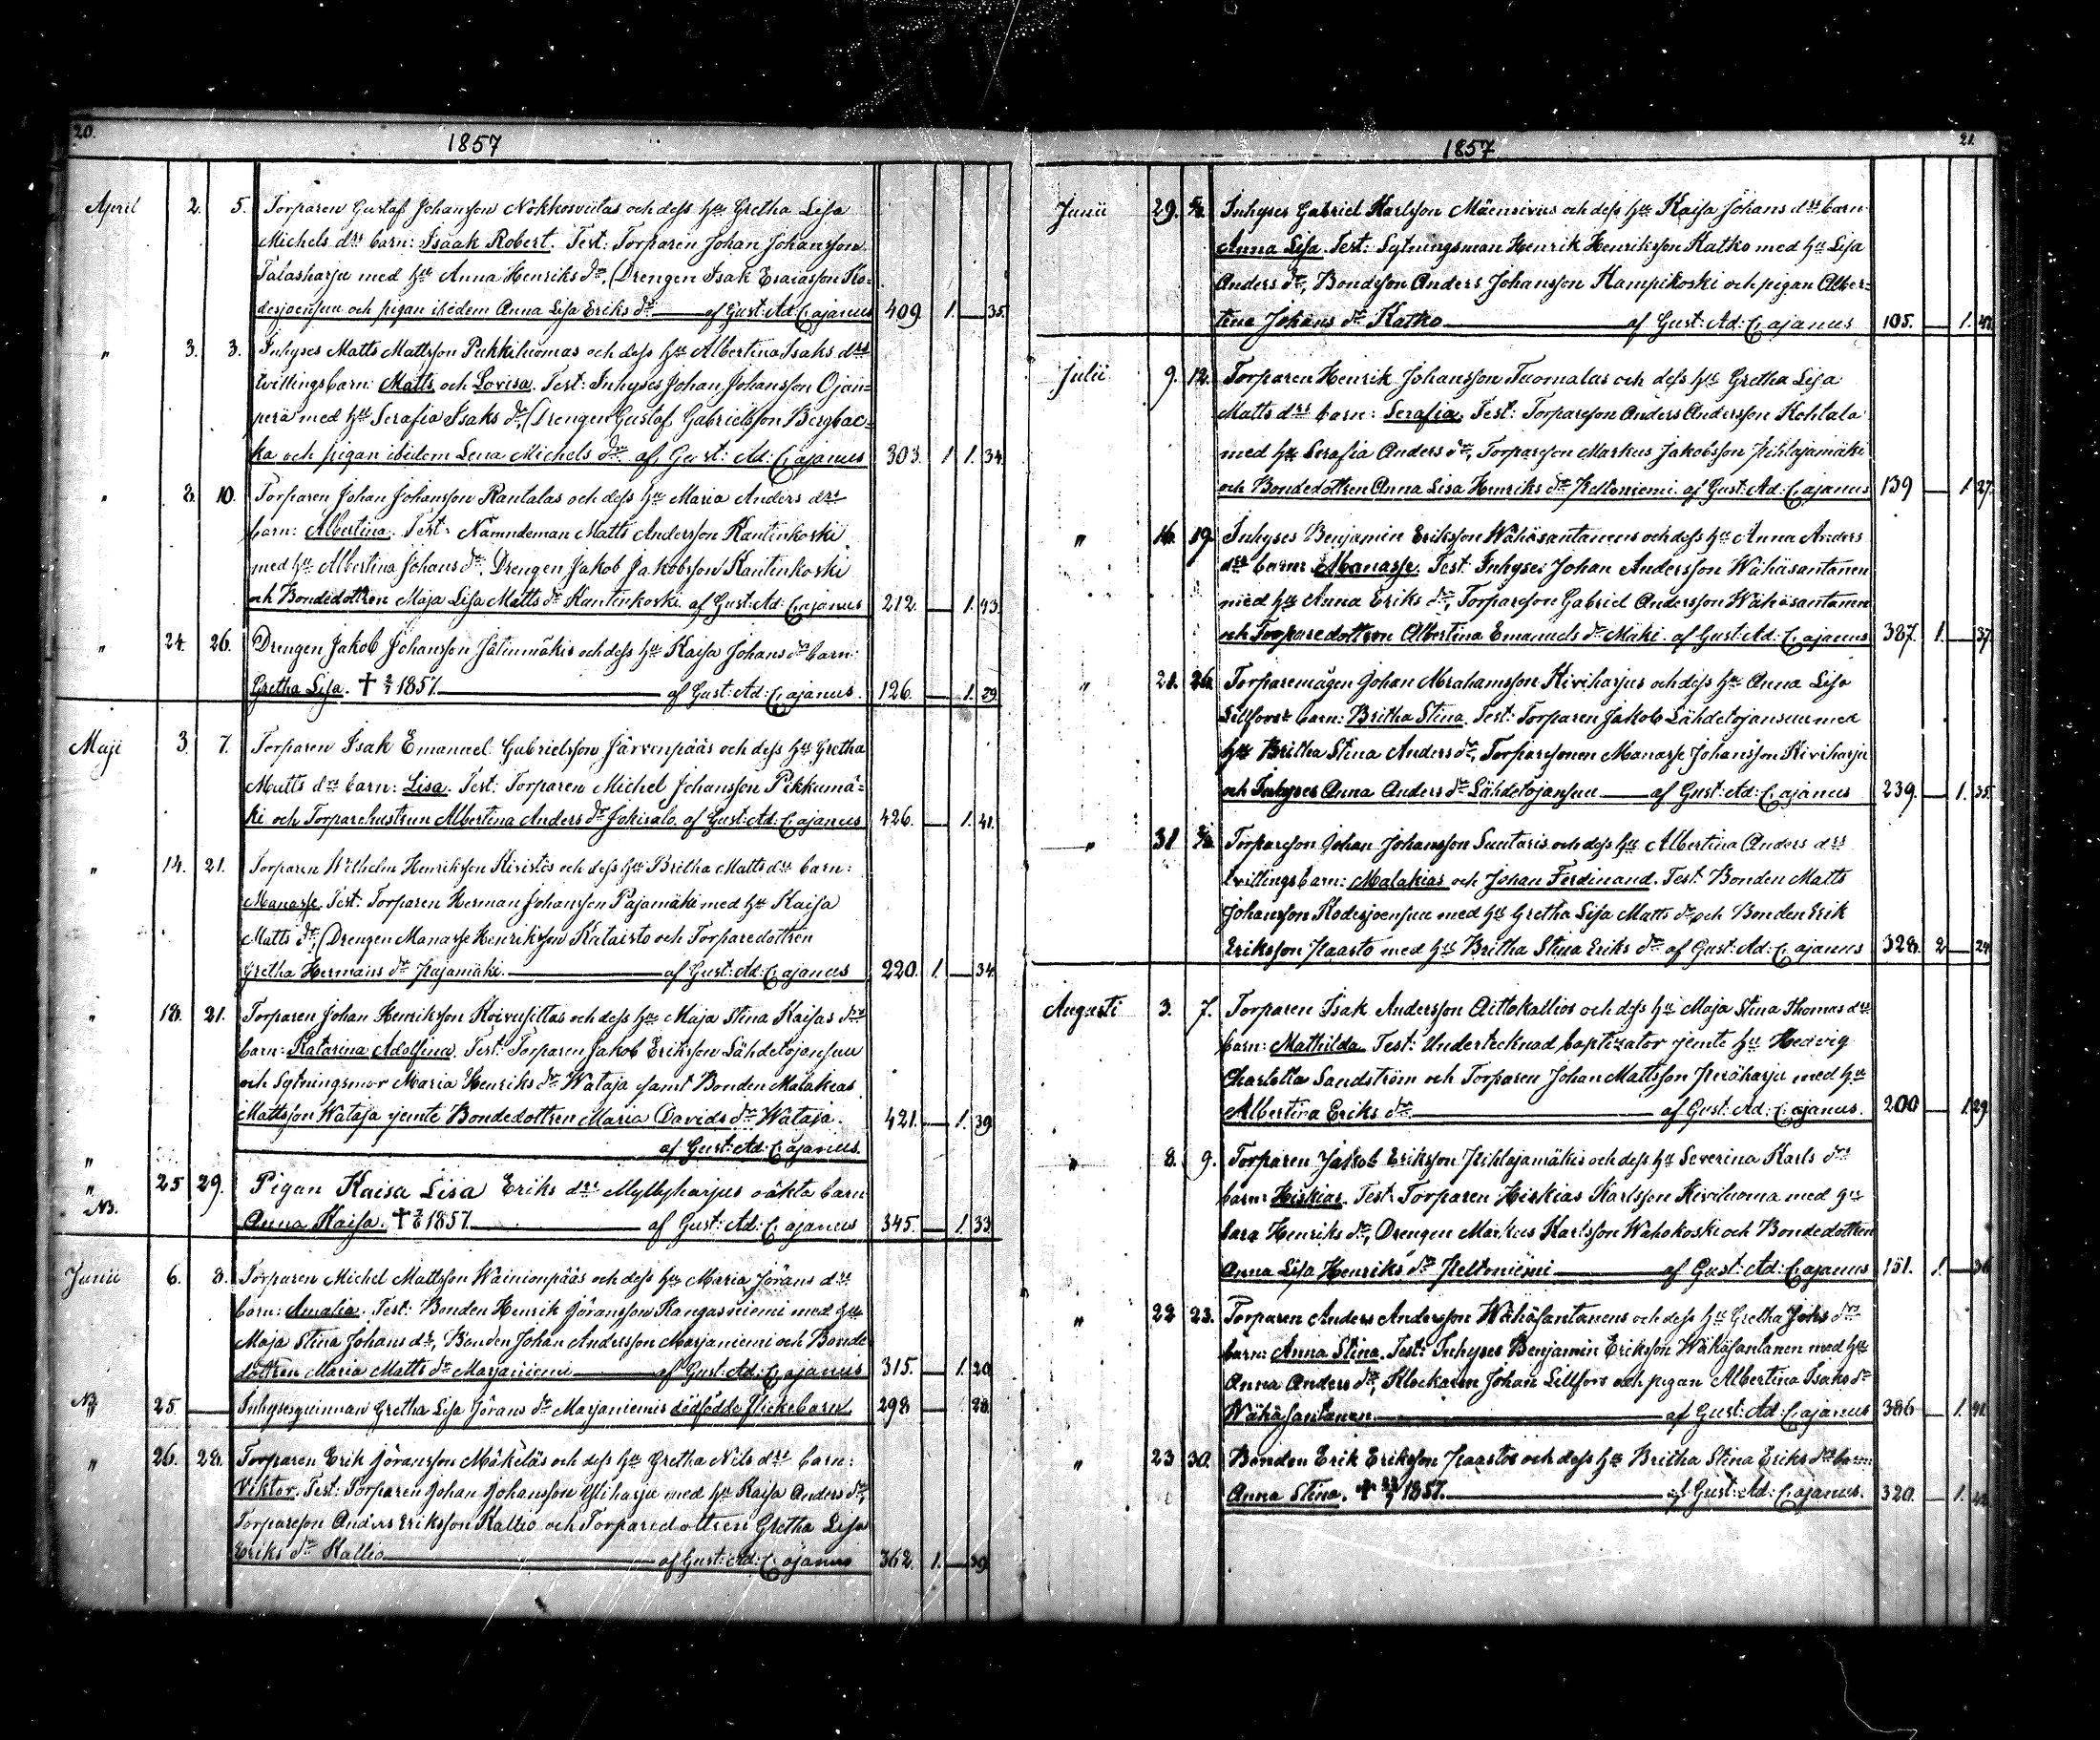 20.
1857
April 2. 5. Torparen Gustaf Johansson Nokkosvitas och dess hu Gretha Lisa
Michels drs barn: Isaak Robert. Test: Torparen Johan Johansson
Talasharju med hu Anna Henriks dr, Drengen Isak Esaiasson Ko-
desjoensuu och pigan ibidem Anna Lisa Eriks dr — af Gust: Ad: Cajanus 409. 1. — 35.
" 3. 3. Inhyses Matts Mattsson Pukkiluomas och dess hu Albertina Isaks drs
tvillingsbarn: Matts och Lovisa. Test: Inhyses Johan Johansson Ojan-
perä med hu Serafia Isaks dr, Drengen Gustaf Gabrielsson Bergbac-
ka och pigan ibidem Lena Michels dr af Gust: Ad: Cajanus 303. 1 1. 34.
" 8. 10. Torparen Johan Johansson Rantalas och dess hu Maria Anders drs
barn: Albertina. Test: Nämndeman Matts Andersson Kantinkoski
med hu Albertina Johans dr, Drengen Jakob Jakobsson Kantinkoski
och Bondedottren Maja Lisa Matts dr Kantinkoski. af Gust: Ad: Cajanus 212. — 1. 43.
" 24. 26. Drengen Jakob Johansson Jätinmäkis och dess hu Kaisa Johans drs barn:
Gretha Lisa. † 1857. — af Gust: Ad: Cajanus. 126. — 1. 29.
Maji 3. 7. Torparen Isak Emanuel Gabrielsson Järvenpääs och dess hu Gretha
Matts drs barn: Lisa. Test: Torparen Michel Johansson Pikkumä-
ki och Torparehustrun Albertina Anders dr Jokisalo. af Gust: Ad: Cajanus 426. — 1. 41.
" 14. 21. Torparen Wilhelm Henriksson Kivistös och dess hu Britha Matts drs barn:
Manasse. Test: Torparen Herman Johansson Pajamäki med hu Kaisa
Matts dr, Drengen Manasse Henriksson Kataisto och Torparedottren
Gretha Hermans dr Pajamäki. — af Gust: Ad: Cajanus 220. 1. — 34
" 18. 21. Torparen Johan Henriksson Koivusittas och dess hu Maja Stina Kaisas drs
barn: Katarina Adolfina. Test: Torparen Jakob Eriksson Lähdetojansuu
och Sytningsmor Maria Henriks dr Wataja samt Bonden Malakias
Mattsson Wataja jemte Bondedottren Maria Davids dr Wataja. 421. — 1. 39
" af Gust: Ad: Cajanus.
" 25 29. Pigan Kaisa Lisa Eriks drs Myllyharjus oäkta barn
NB. Anna Kaisa. † 1857. — af Gust: Ad: Cajanus 345. — 1. 33
Junii 6. 8. Torparen Michel Mattsson Wainionpääs och dess hu Maria Jörans drs
barn: Amalia. Test: Bonden Henrik Göransson Kangasniemi med hu
Maja Stina Johans dr, Bonden Johan Andersson Marjaniemi och Bonde
dottren Maria Matts dr Marjaniemi — af Gust: Ad: Cajanus 315. — 1. 20
NB " 25. — Inhysesquinnan Gretha Lisa Jörans dr Marjaniemis dödfödda flickebarn. 298 — 28.
" 26. 28. Torparen Erik Göransson Mäkeläs och dess hu Gretha Nils drs barn:
Viktor. Test: Torparen Johan Johansson Yliharju med hu Kaisa Anders dr,
Torpareson Anders Eriksson Kallio och Torparedottren Gretha Lisa
Eriks dr Kallio — af Gust: Ad: Cajanus 362. 1. — 39
21.
1857
Junii 29. Inhyses Gabriel Karlsson Mäensivus och dess hu Kaisa Johans drs barn
Anna Lisa. Test: Sytningsman Henrik Henriksson Katko med hu Lisa
Anders dr, Bondeson Anders Johansson Kampikoski och pigan Alber-
tina Johans dr Katko — af Gust: Ad: Cajanus 105. — 1.
Julii 9. 12. Torparen Henrik Johansson Tuomalas och dess hu Gretha Lisa
Matts drs barn: Serafia. Test: Torpareson Anders Andersson Kohtala
med hu Serafia Anders dr, Torpareson Markus Jakobsson Pihlajamäki
och Bondedottren Anna Lisa Henriks dr Peltoniemi. af Gust: Ad: Cajanus 139 — 1 27.
" 16. 19. Inhyses Benjamin Eriksson Wähäsantanens och dess hu Anna Anders
drs barn: Manasse. Test: Inhyses Johan Andersson Wähäsantanen
med hu Anna Eriks dr, Torpareson Gabriel Andersson Wähäsantanen
och Torparedottren Albertina Emanuels dr Mäki. af Gust: Ad: Cajanus 387. 1. — 37.
" 21. 26. Torparemågen Johan Abrahamsson Kiviharjus och dess hu Anna Lisa
Lillfors's barn: Britha Stina. Test: Torparen Jakob Lähdetojansuu med
hu Britha Stina Anders dr, Torparesonen Manasse Johansson Kiviharju
och Inhyses Anna Anders dr Lähdetojansuu — af Gust: Ad: Cajanus 239. — 1. 35.
" 31 Torpareson Johan Johansson Suutaris och dess hu Albertina Anders drs
tvillingsbarn: Malakias och Johan Ferdinand. Test: Bonden Matts
Johansson Kodesjoensuu med hu Gretha Lisa Matts dr och Bonden Erik
Eriksson Paasto med hu Britha Stina Eriks dr af Gust: Ad: Cajanus 328. 2 — 24
Augusti 3. 7. Torparen Isak Andersson Aittokallios och dess hu Maja Stina Thomas drs
barn: Mathilda. Test: Undertecknad baptizator jemte hu Hedvig
Charlotta Sandström och Torparen Johan Mattsson Peräharju med hu
Albertina Eriks dr — af Gust: Ad: Cajanus. 200 — 1. 29
" 8. 9. Torparen Jakob Eriksson Pihlajamäkis och dess hu Severina Karls drs
barn: Hiskias. Test: Torparen Hiskias Karlsson Kiviluoma med hu
Sara Henriks dr, Drengen Markus Karlsson Wahokoski och Bondedottren
Anna Lisa Henriks dr Peltoniemi — af Gust: Ad: Cajanus 151. 1. —
" 22 23. Torparen Anders Andersson Wähäsantanens och dess hu Gretha Johs drs
barn: Anna Stina. Test: Inhyses Benjamin Eriksson Wähäsantanen med hu
Anna Anders dr, Klockaren Johan Lillfors och pigan Albertina Isaks dr
Wähäsantanen. — af Gust: Ad: Cajanus 386 — 1. 41.
" 23 30. Bonden Erik Eriksson Paastos och dess hu Britha Stina Eriks drs barn
Anna Stina. † 1857. — af Gust: Ad: Cajanus. 320. — 1.